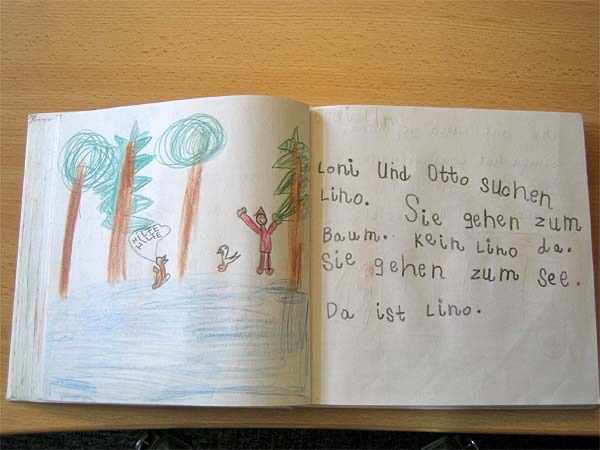 HILFE
HILFE
Loni Und Otto suchen
Lino. Sie gehen zum
Baum. Kein Lino da.
Sie gehen zum See.
Da ist Lino.